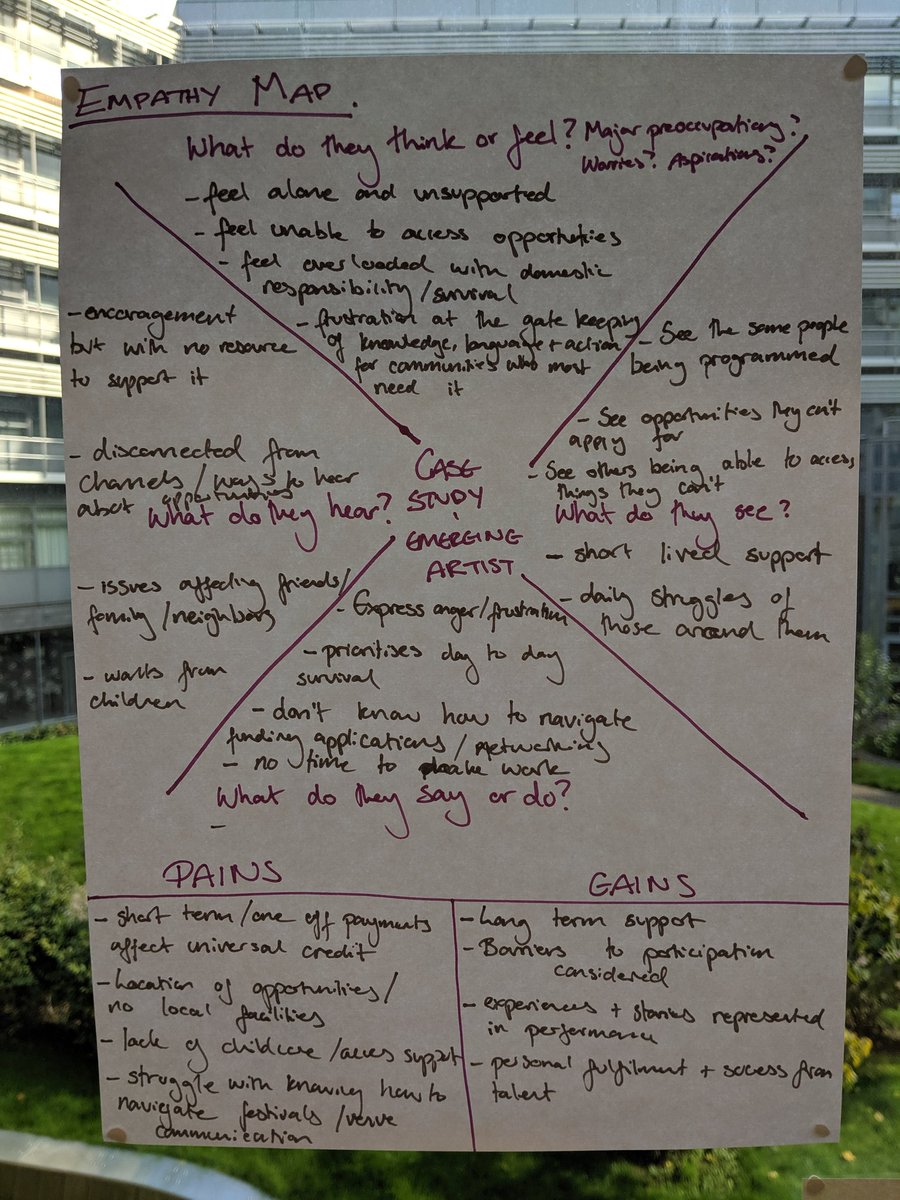 EMPATHY MAP.
What do they think or feel? Major preoccupations?
Worries? Aspirations?
- feel alone and unsupported
- feel unable to access opportunities
- feel overloaded with domestic
responsibility/survival
- frustration at the gate keeping
of knowledge, language + action
for communities who most
need it
- encouragement
but with no resource
to support it
- disconnected from
channels/ways to hear
about opportunities
What do they hear?
- issues affecting friends/
family/neighbors
- wants from
children
CASE
STUDY
EMERGING
ARTIST
- See the same people
being programmed
- See opportunities they can't
apply for
- See others being able to access
things they can't
What do they see?
- short lived support
- daily struggles of
those around them
- Express anger/frustration
- prioritises day to day
survival
- don't know how to navigate
funding applications/networking
- no time to make work
What do they say or do?
-
PAINS
- short term/one off payments
affect universal credit
- Location of opportunities/
no local facilities
- lack of childcare/access support
- struggle with knowing how to
navigate festivals/venue
communication
GAINS
- Long term support
- Barriers to participation
considered
- experiences + stories represented
in performance
- personal fulfilment + success from
talent